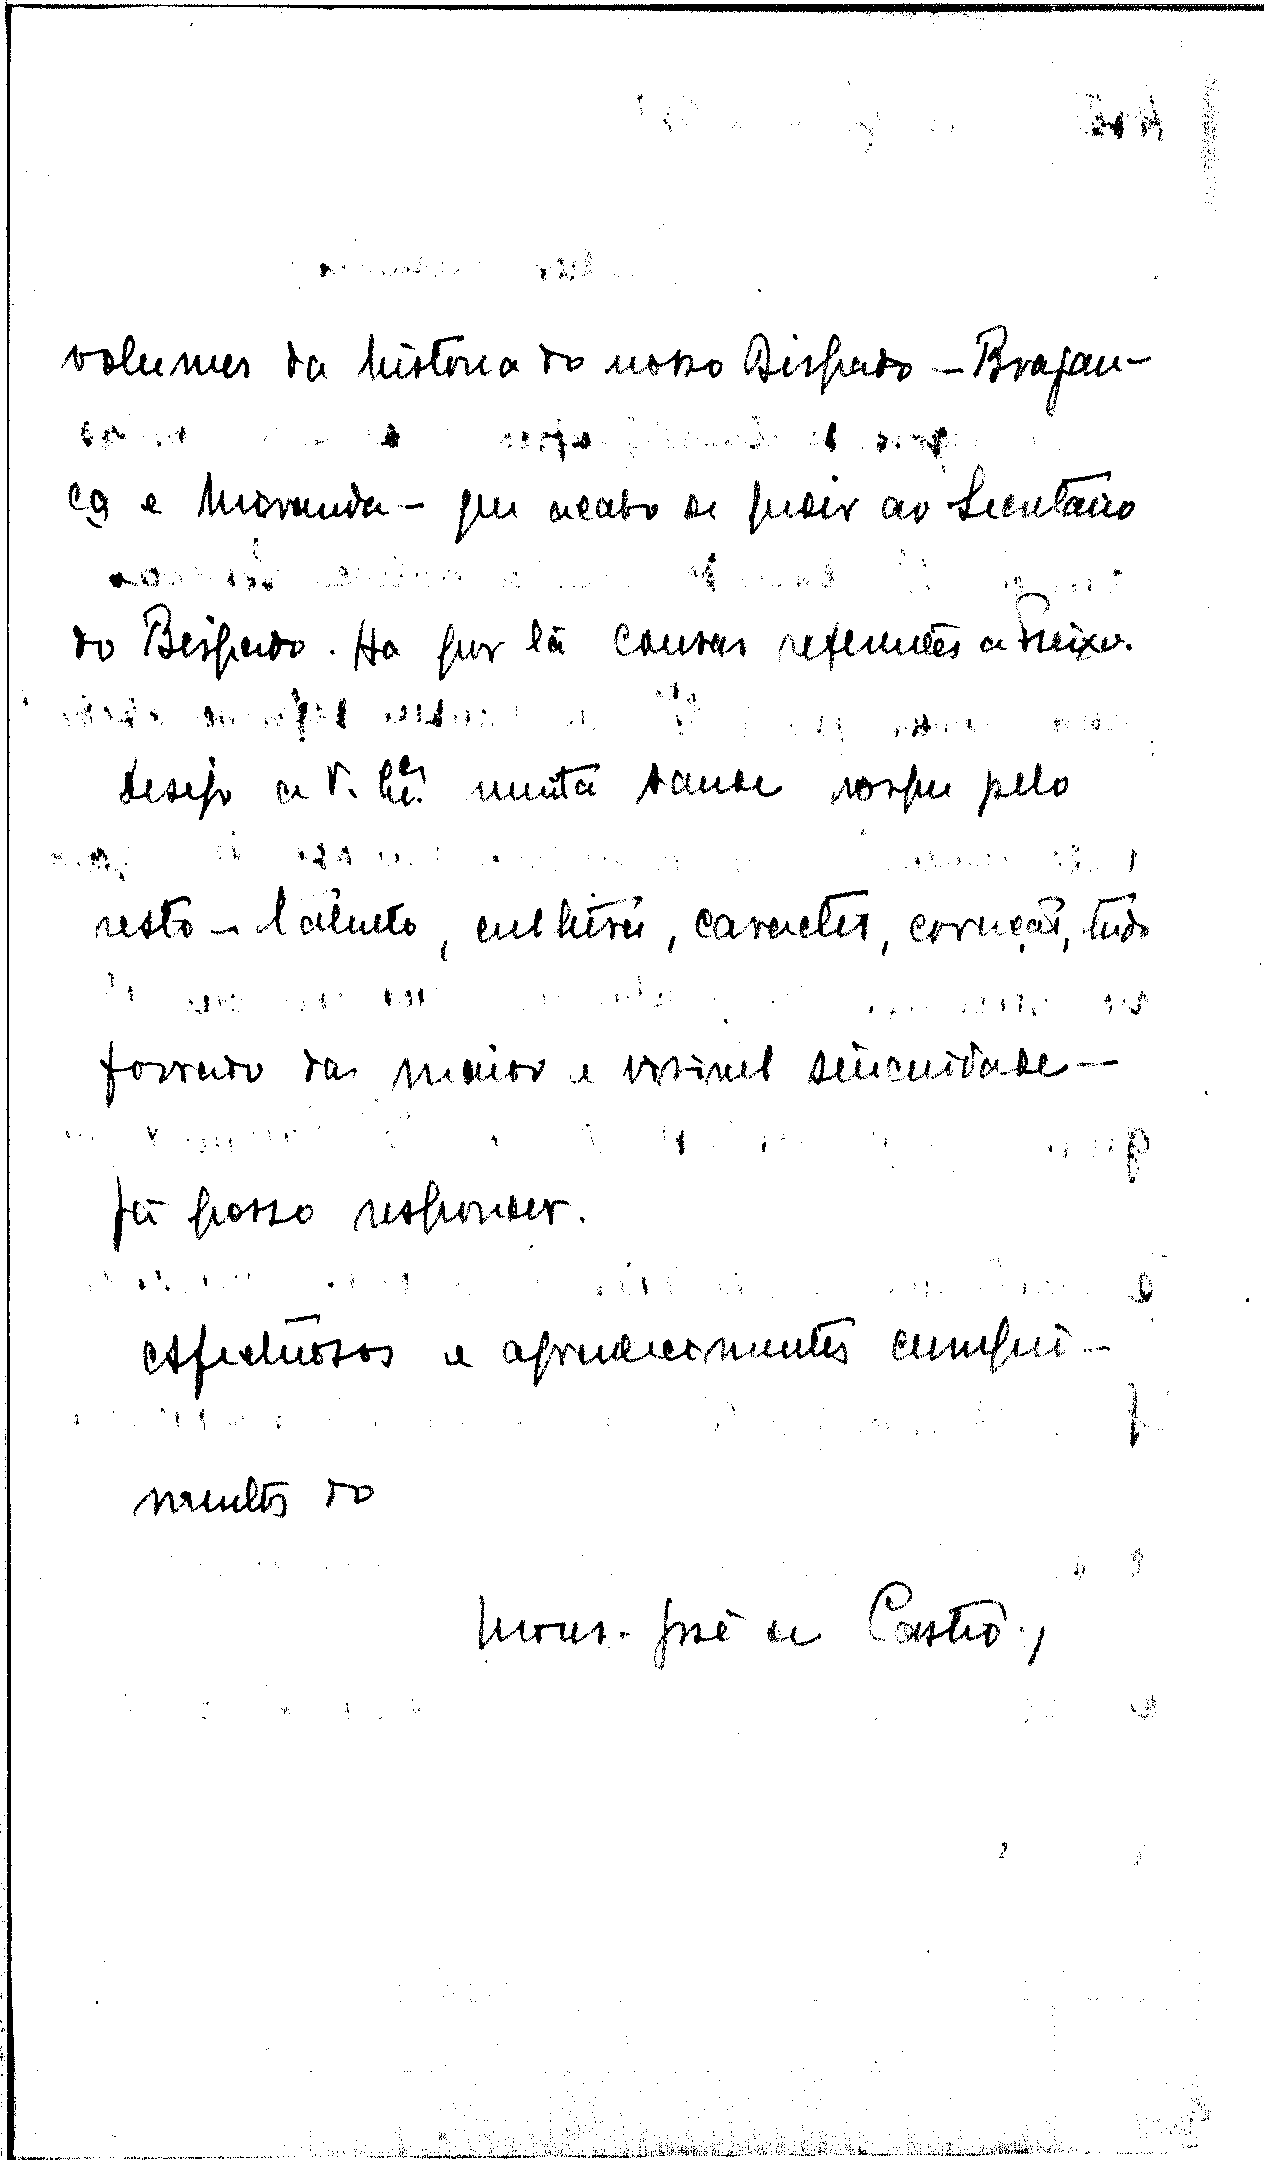 volumes da história do nosso Bispado - Bragan-
ça e Miranda - que acabo de pedir ao Secretário
do Bispado. Ha por lá cousas referentes a Freixo.
Desejo a V. Ex.ª muita saude porque pelo
resto - talento, cultura, caracter, coração, tudo
forrado da maior e visivel sinceridade -
já posso responder.
Afectuosos e agradecimentos cumpri-
mentos do
Mons. José de Castro